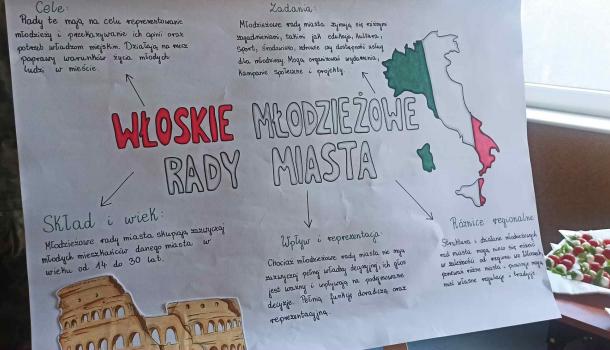 Cele:
Rady te mają na celu reprezentowanie
młodzieży i przekazywanie ich opinii oraz
potrzeb władzom miejskim. Działają na rzecz
poprawy warunków życia młodych
ludzi w mieście.
Zadania:
Młodzieżowe rady miasta zajmują się różnymi
zagadnieniami, takimi jak edukacja, kultura,
sport, środowisko, zdrowie czy dostępność usług
dla młodzieży. Mogą organizować wydarzenia,
kampanie społeczne i projekty.
WŁOSKIE MŁODZIEŻOWE
RADY MIASTA
Skład i wiek:
Młodzieżowe rady miasta skupiają zazwyczaj
młodych mieszkańców danego miasta w
wieku od 14 do 30 lat.
Wpływ i reprezentacja:
Chociaż młodzieżowe rady miasta nie mają
zazwyczaj pełnej władzy decyzyjnej, ich głos
jest ważny i wpływają na podejmowane
decyzje. Pełnią funkcję doradczą oraz
reprezentacyjną.
Różnice regionalne
Struktura i działanie młodzieżowych
rad miasta mogą nieco się różnić
w zależności od regionu we Włoszech,
ponieważ różne miasta i prowincje mogą
mieć własne regulacje i tradycje.